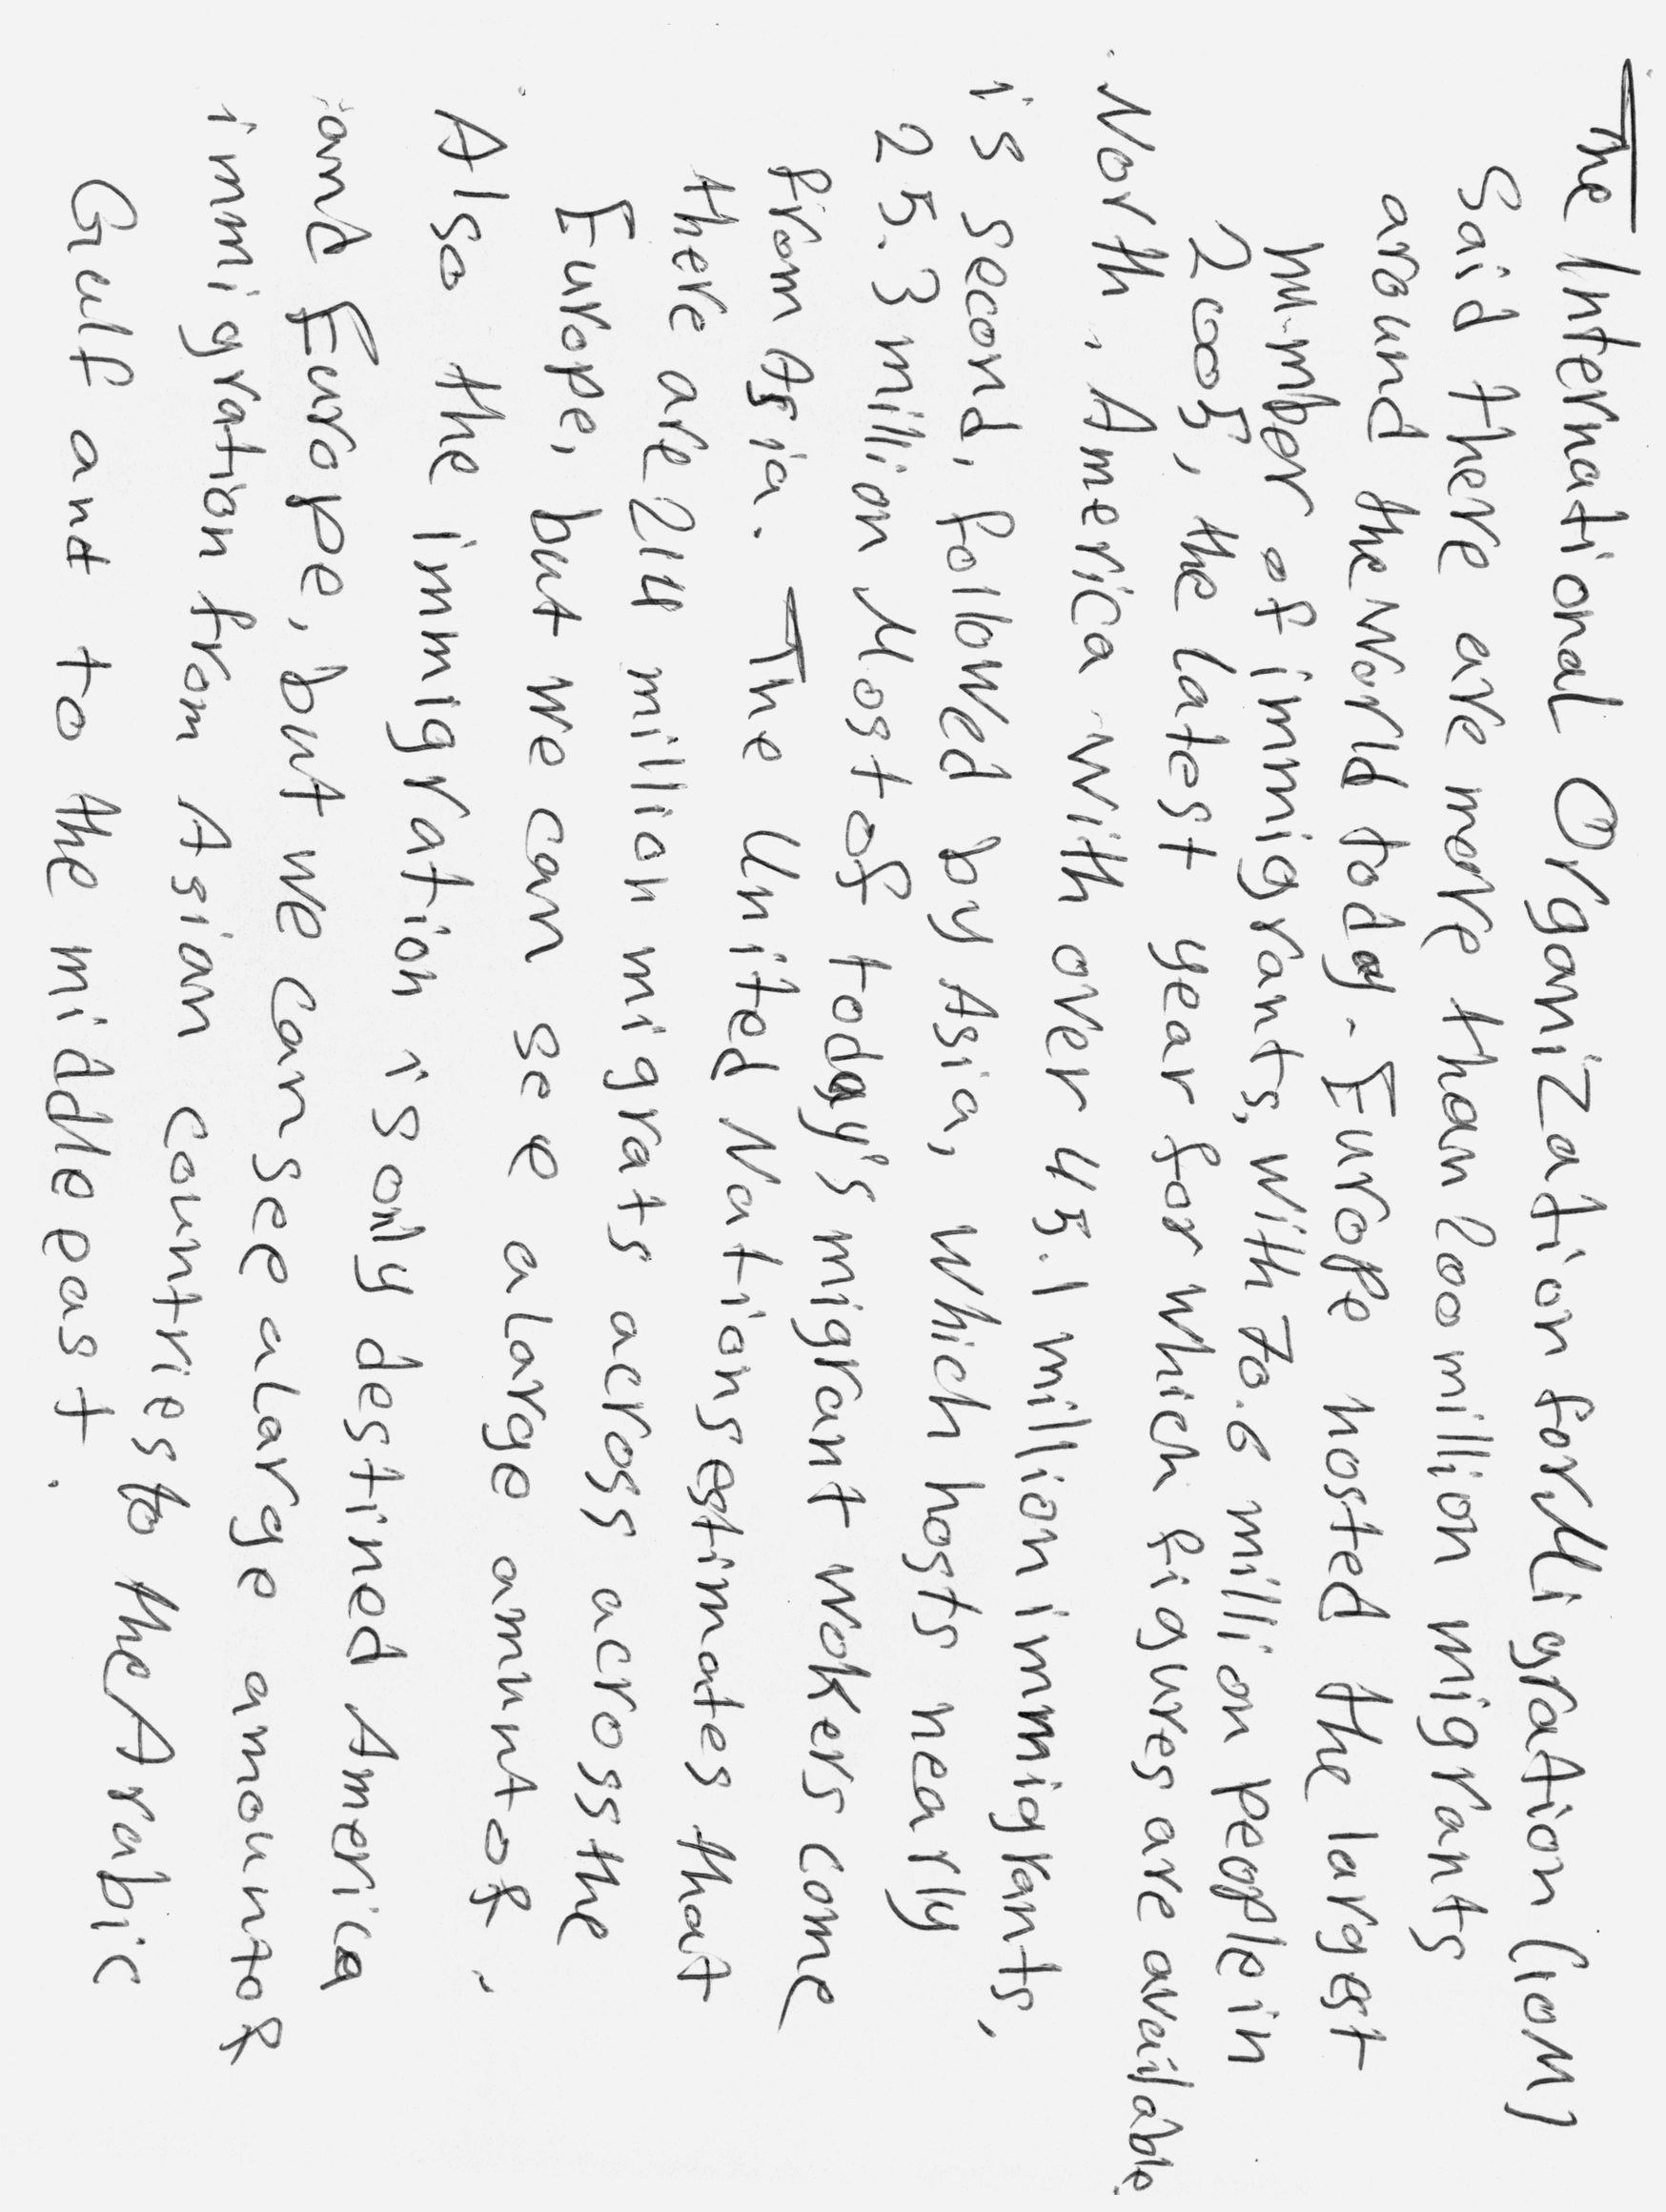 The International Organization for Migration (IOM)
said there are more than 200 million migrants
around the world today. Europe hosted the largest
number of immigrants, with 70.6 million people in
2005, the latest year for which figures are available.
North America with over 45.1 million immigrants,
is second, followed by Asia, which hosts nearly
25.3 million Most of today's migrant wokers come
from Asia. The United Nations estimates that
there are 214 million migrats across across the
Europe, but we can see a large amunt of,
Also the immigration is only destined America
and Europe, but we can see a large amount of
immigration from Asian countries to the Arabic
Gulf and to the middle east.